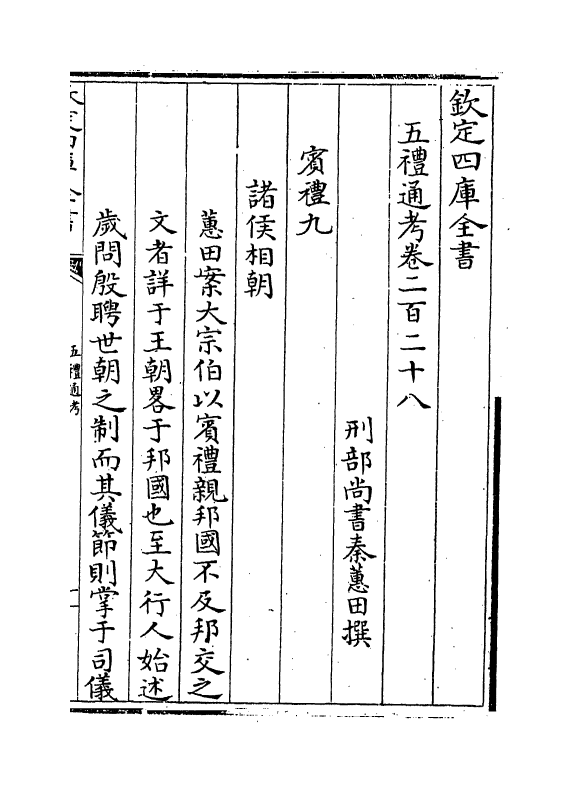 欽定四庫全書
五禮通考卷二百二十八
刑部尚書秦蕙田撰
賓禮九
諸侯相朝
蕙田案大宗伯以賓禮親邦國不及邦交之
文者詳于王朝畧于邦國也至大行人始述
歲問殷聘世朝之制而其儀節則掌于司儀
五禮通考